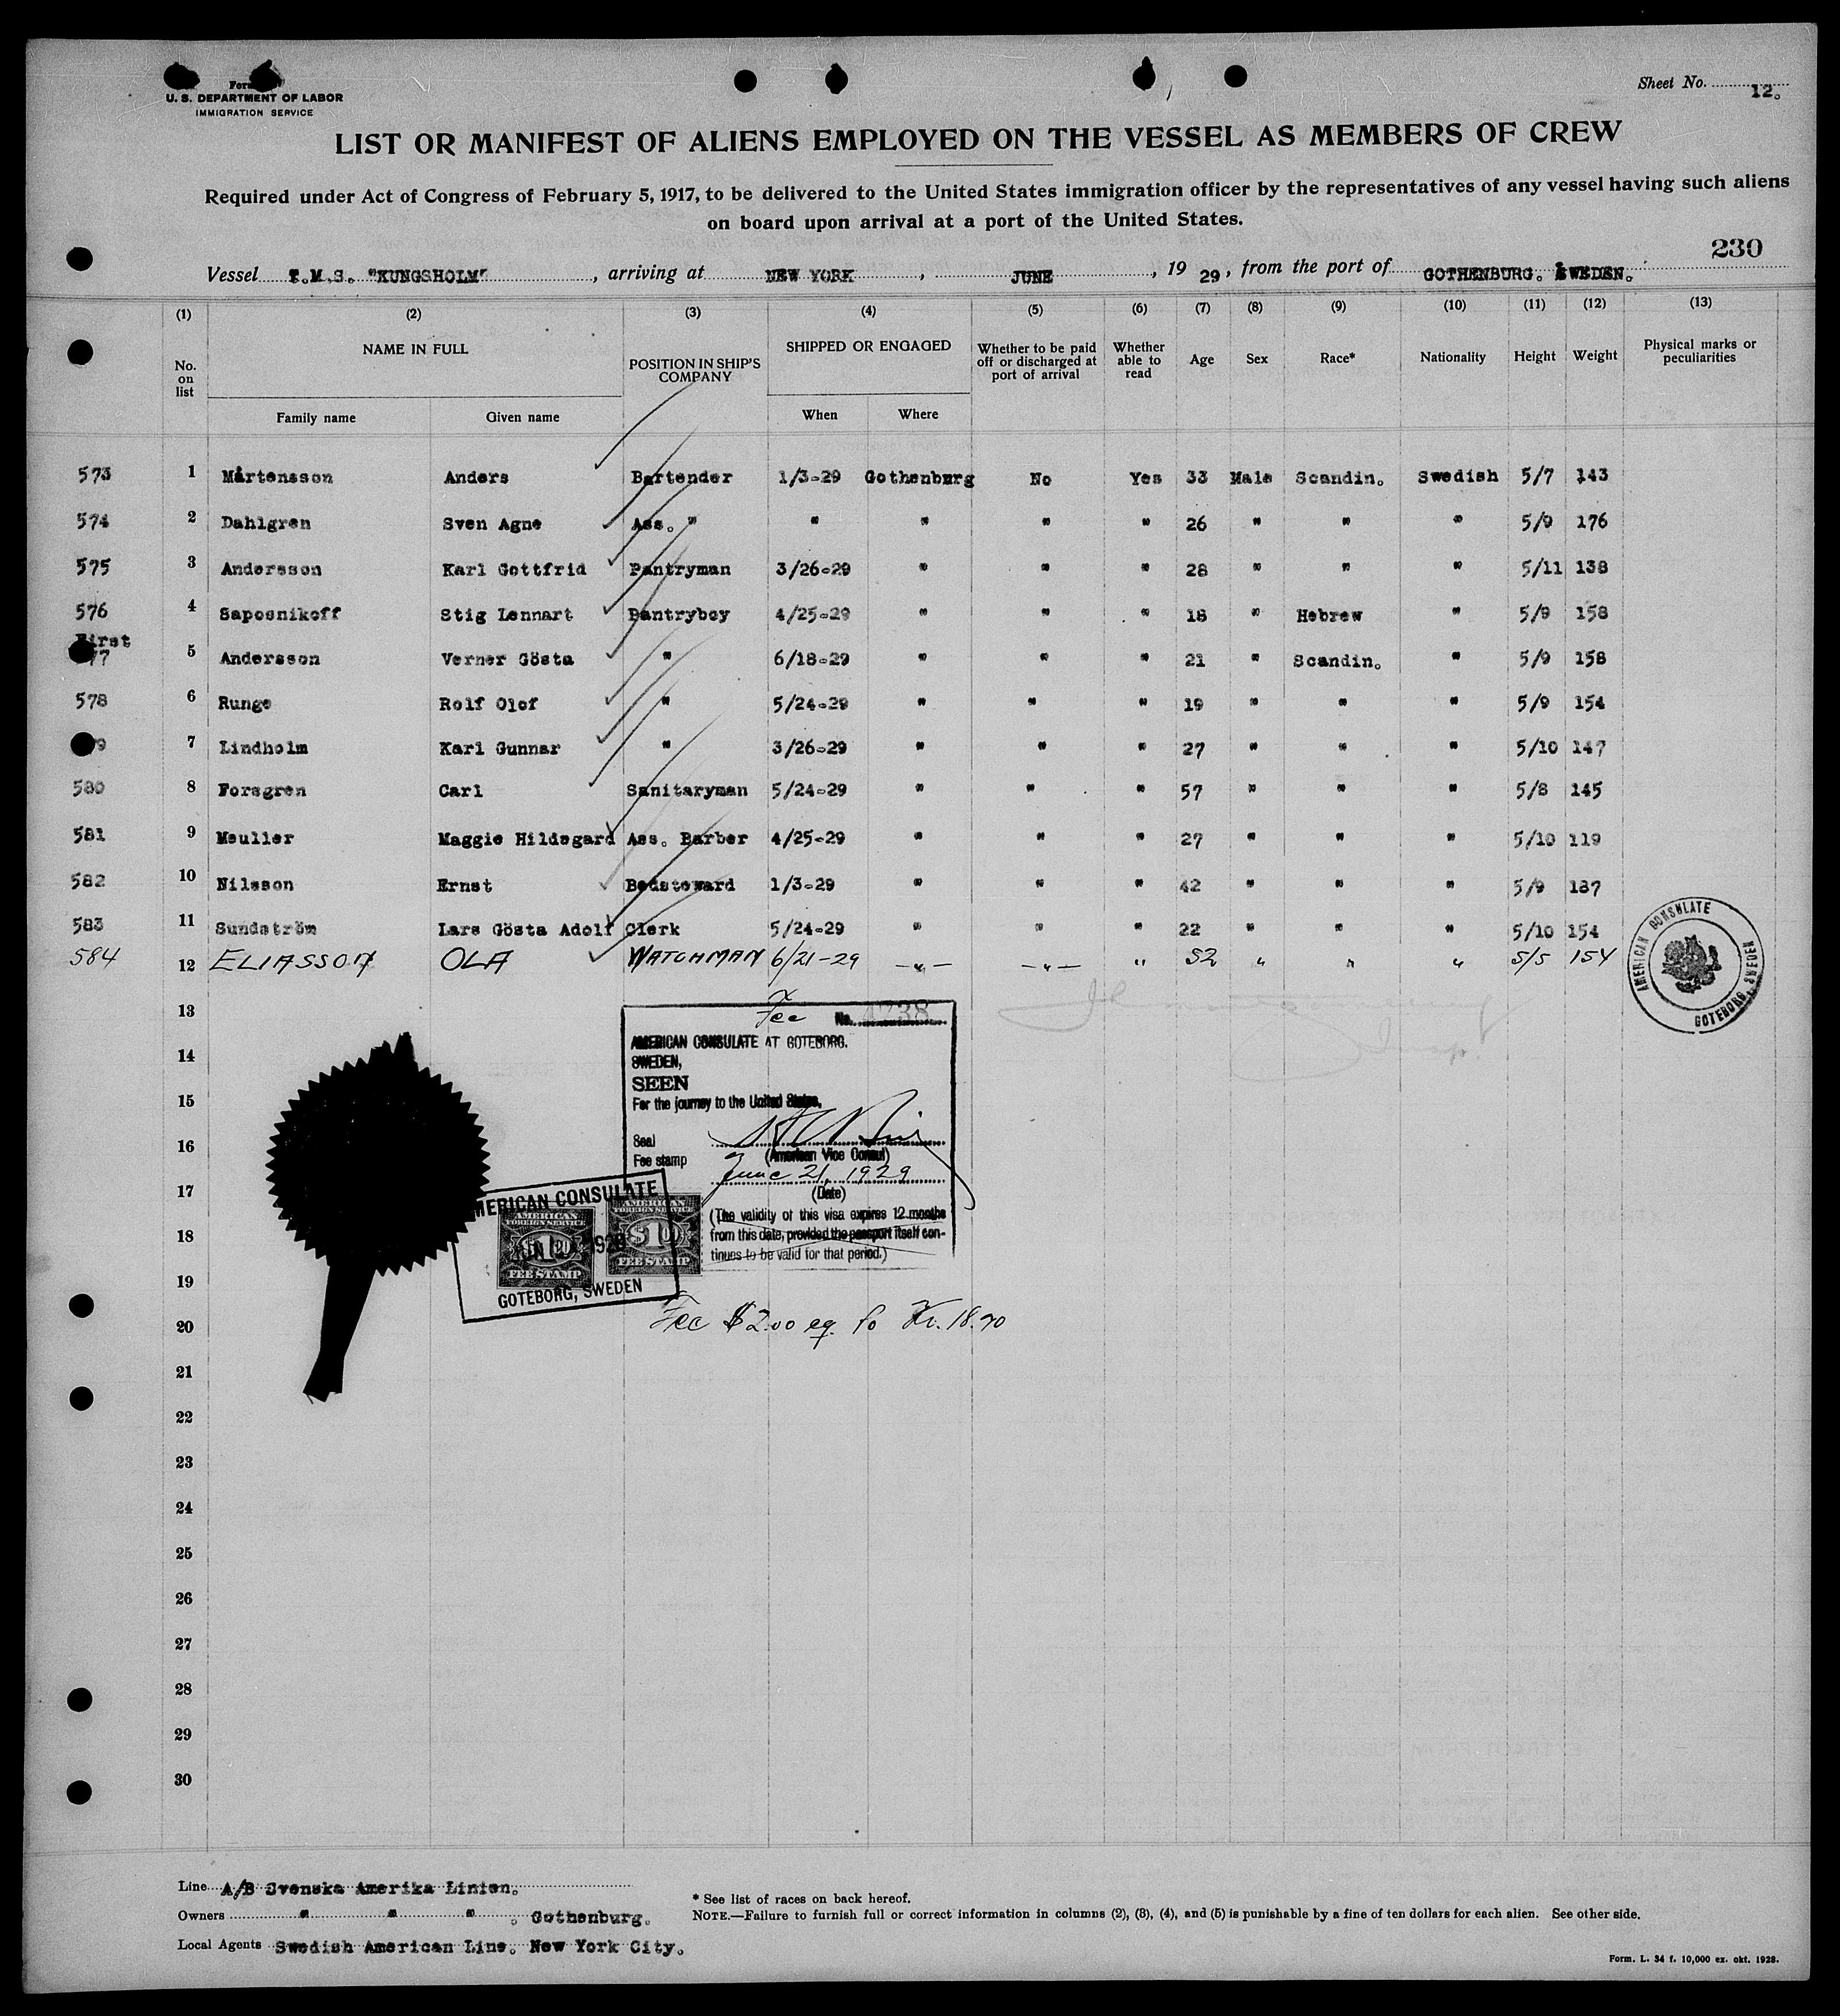 Form
U. S. DEPARTMENT OF LABOR
IMMIGRATION SERVICE
Sheet No. 12.
LIST OR MANIFEST OF ALIENS EMPLOYED ON THE VESSEL AS MEMBERS OF CREW
Required under Act of Congress of February 5, 1917, to be delivered to the United States immigration officer by the representatives of any vessel having such aliens
on board upon arrival at a port of the United States.
230
Vessel T.M.S. "KUNGSHOLM", arriving at NEW YORK, JUNE, 19 29, from the port of GOTHENBURG. SWEDEN.
(1) (2) (3) (4) (5) (6) (7) (8) (9) (10) (11) (12) (13)
No. on list NAME IN FULL POSITION IN SHIP'S COMPANY SHIPPED OR ENGAGED Whether to be paid off or discharged at port of arrival Whether able to read Age Sex Race* Nationality Height Weight Physical marks or peculiarities
Family name Given name When Where
573 1 Mårtensson Anders Bartender 1/3-29 Gothenburg No Yes 33 Male Scandin. Swedish 5/7 143
574 2 Dahlgren Sven Agne Ass. " " " " " 26 " " " 5/9 176
575 3 Andersson Karl Gottfrid Pantryman 3/26-29 " " " 28 " " " 5/11 138
576 4 Saposnikoff Stig Lennart Pantryboy 4/25-29 " " " 18 " Hebrew " 5/9 158
First
77 5 Andersson Verner Gösta " 6/18-29 " " " 21 " Scandin. " 5/9 158
578 6 Runge Rolf Olof " 5/24-29 " " " 19 " " " 5/9 154
9 7 Lindholm Karl Gunnar " 3/26-29 " " " 27 " " " 5/10 147
580 8 Forsgren Carl Sanitaryman 5/24-29 " " " 57 " " " 5/8 145
581 9 Meuller Maggie Hildegard Ass. Barber 4/25-29 " " " 27 " " " 5/10 119
582 10 Nilsson Ernst Bedsteward 1/3-29 " " " 42 " " " 5/9 187
583 11 Sundström Lars Gösta Adolf Clerk 5/24-29 " " " 22 " " " 5/10 154
584 12 ELIASSON OLA WATCHMAN 6/21-29 —"— —"— " 52 " " " 5/5 154
AMERICAN CONSULATE
GOTEBORG, SWEDEN
13
Fee No. 4738
AMERICAN CONSULATE AT GOTEBORG,
SWEDEN,
14
SEEN
15
For the journey to the United States,
16
Seal
(American Vice Consul)
Fee stamp
June 21, 1929
17
(Date)
(The validity of this visa expires 12 months
18
from this date, provided the passport itself con-
tinues to be valid for that period.)
AMERICAN CONSULATE
AMERICAN FOREIGN SERVICE $1.00 FEE STAMP
AMERICAN FOREIGN SERVICE $1.00 FEE STAMP
GOTEBORG, SWEDEN
19
20
Fee $2.00 eq. to Kr. 18.70
21
22
23
24
25
26
27
28
29
30
Line A/B Svenska Amerika Linien.
Owners " " ". Gothenburg.
Local Agents Swedish American Line. New York City.
* See list of races on back hereof.
NOTE.—Failure to furnish full or correct information in columns (2), (3), (4), and (5) is punishable by a fine of ten dollars for each alien. See other side.
Form. L. 34 f. 10,000 ex. okt. 1928.